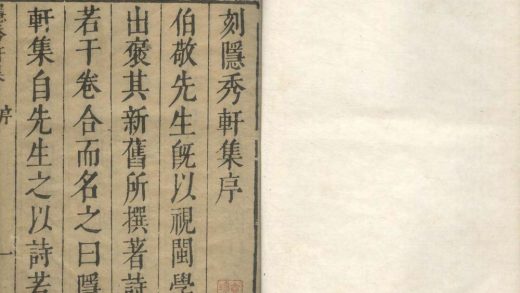 刻隱秀軒集序
伯敬先生旣以視閩學
出裒其新舊所撰著詩
若干卷合而名之曰隱
軒集自先生之以詩若
序
一